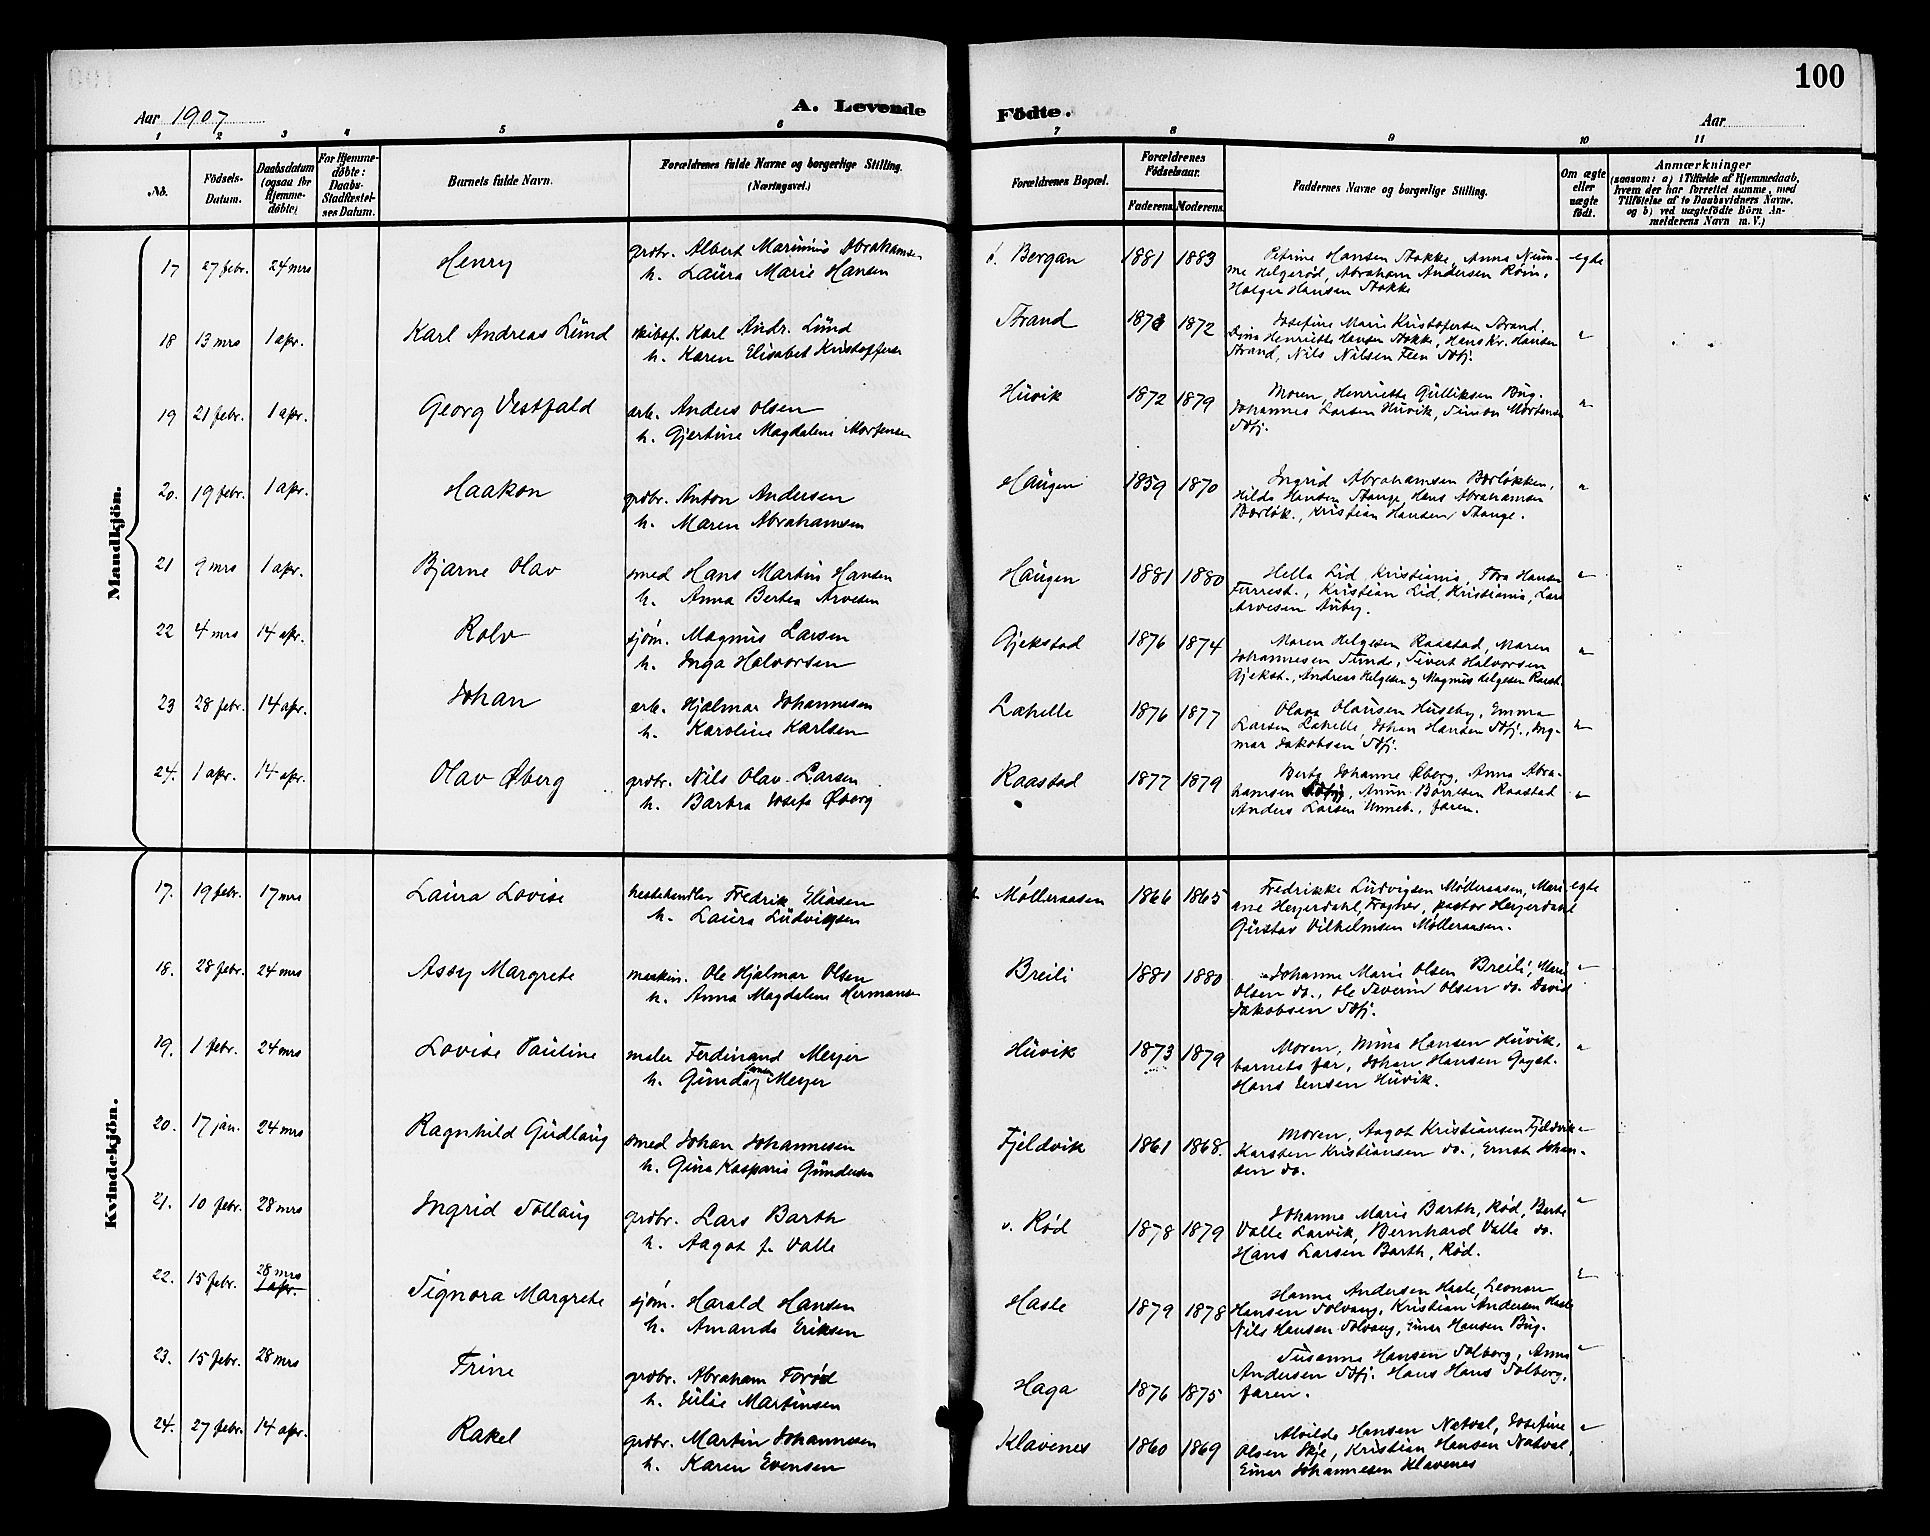 100
Aar 1907
A. Levende Födte.
Aar
1 2 3 4 5 6 7 8 9 10 11
No.
Födsels-Datum.
Daabsdatum (ogsaa for Hjemme-döbte)
For Hjemme-döbte: Daabs-Stadfæstel-ses Datum.
Barnets fulde Navn.
Forældrenes fulde Navne og borgerlige Stilling. (Næringsvei.)
Forældrenes Bopæl.
Forældrenes Födselsaar.
Faderens Moderens
Faddernes Navne og borgerlige Stilling.
Om ægte eller uægte födt.
Anmærkninger
(saasom: a) i Tilfælde af Hjemmedaab,
hvem der har forrettet samme, med
Tilföielse af to Daabsvidners Navne.
og b) ved uægtefödte Börn An-
melderens Navn m. V.)
Mandkjön.
17 27 febr. 24 mrs Henry
grdbr. Albert Marinius Abrahamsen
h. Laura Marie Hansen
Bergan 1881 1883
Petrine Hansen Stokke, Anna
Helgerød, Abraham Andersen
Holger Hansen Stokke
egte
18 13 mrs 1 apr. Karl Andreas Lund
skibsf. Karl Andr. Lund
h. Karen Elisabet Kristoffersen
Strand 1872
Josefine Marie Kristofersen Strand.
Henriette Hansen Stokke, Hans Kr. Hansen
Strand, Nils Nilsen Feen
19 21 febr. 1 apr. Georg Vestfald
arb. Anders Olsen
h. Gjertine Magdalene Mortensen
Huvik 1872 1879
Moren, Henriette Gulliksen Bug.
Johannes Larsen Huvik, Simon Mortensen
Sdfj.
20. 19 febr. 1 apr. Haakon
grdbr. Anton Andersen
h. Maren Abrahamsen
Haugen 1859 1870
Ingrid Abrahamsen Børløkken,
Hilda Hansen Stange, Hans Abrahamsen
Børløk., Kristian Hansen Stange.
21 9 mrs 1 apr. Bjarne Olav
smed Hans Martin Hansen
h. Anna Bertea Arvesen
Haugen 1881 1880
Hella Lid, Kristiania, Tora Hansen
Furrest., Kristian Lid, Kristiania, Lars
Arvesen Auby.
22 4 mrs 14 apr. Rolv
sjøm. Magnus Larsen
h. Inga Halvorsen
Gjekstad 1876 1874
Maren Helgesen Raastad, Maren
Johannesen Sunde, Sivert Halvorsen
Gjekst., Andreas Helgesen og Magnus Helgesen Raast.
23 28 febr. 14 apr. Johan
arb. Hjalmar Johannesen
h. Karoline Karlsen
Lahelle 1876 1877
Olava Olausen Huseby, Emma
Larsen Lahelle, Johan Hansen Sdfj., Ing-
mar Jakobsen Sdfj.
24. 1 apr. 14 apr. Olav Øberg
grdbr. Nils Olav Larsen
h. Barbra Josefa Øberg
Raastad 1877 1879
Berta Johanne Øberg, Anna Abra-
hamsen Sdfj, Anun Børresen Raastad
Anders Larsen Unneb., faren.
Kvindekjön.
17. 19 febr. 17 mrs Laura Lovise
hestehandler Fredrik Eliasen
h. Laura Ludvigsen
Mølleraasen 1866 1865
Fredrikke Ludvigsen Mølleraasen, Mari-
ane Heyerdahl, Fogner, pastor Heyerdahl
Gustav Vilhelmsen Mølleraasen.
egte
18. 28 febr. 24 mrs Assy Margrete
maskin. Ole Hjalmar Olsen
h. Anna Magdalene Hermansen
Breili 1881 1880
Johanne Marie Olsen Breili, Marie
Olsen do., Ole Severin Olsen do. David
Jakobsen Sdfj.
19. 1 febr. 24 mrs Lovise Pauline
maler Ferdinand Meyer
h. Gunda Meyer
Huvik 1873 1879
Moren, Mina Hansen Huvik,
barnets far, Johan Hansen
Hans Jensen Huvik.
20. 17 jan. 24 mrs Ragnhild Gudlaug
smed Johan Johannesen
h. Gina Kasparia Gundersen
Fjeldvik 1861 1868.
Moren, Aagot Kristiansen Fjeldvik
Karsten Kristiansen do., Ernst Johan-
sen do.
21. 10 febr. 28 mrs Ingrid Sollaug
grdbr. Lars Barth
h. Aagot f. Valle
v. Rød 1878 1879
Johanna Marie Barth, Rød, Berta
Valle Larvik, Bernhard Valle do.
Hans Larsen Barth, Rød.
22. 15 febr. 28 mrs 1 apr. Signora Margrete
sjøm. Harald Hansen
h. Amanda Eriksen
Hasle 1879 1878
Hanna Andersen Hasle, Leonora
Hansen Solvang, Kristian Andersen Hasle
Nils Hansen Solvang, Einar Hansen Bug.
23. 15 febr. 28 mrs Trine
grdbr. Abraham Forød
h. Julie Martinsen
Haga 1876 1875
Susanna Hansen Solberg, Anna
Andersen Sdfj. Hans Hans Solberg,
faren.
24. 27 febr. 14 apr. Rakel
grdbr. Martin Johannesen
h. Karen Evensen
Klavenes 1860 1869
Alvilde Hansen Natval, Josefine
Olsen Skje, Kristian Hansen Natval,
Einar Johannesen Klavenes